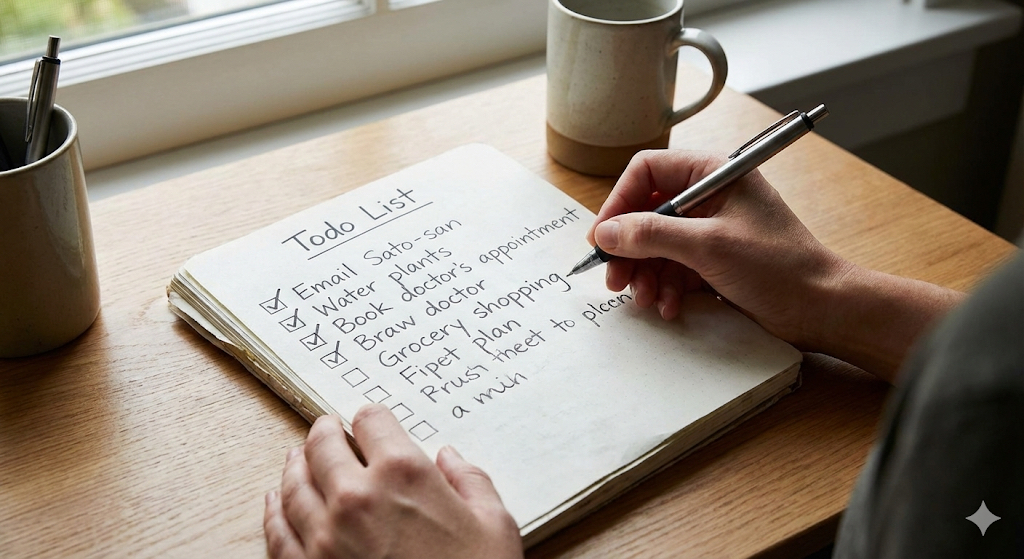 Todo List
Email Sato-san
Water plants
Book doctor's appointment
Braw doctor
Grocery shopping
Fipet plan
Frust theet to plccn
a muh